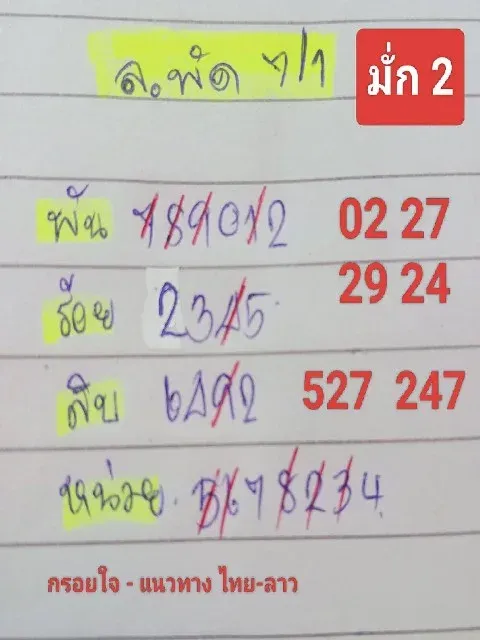 ล.พัด 7/1
มั่ก 2
พัน 789012
02 27
ร้อย 2345
29 24
สิบ 6892
527 247
หน่วย. 5678234
กรอยใจ - แนวทาง ไทย-ลาว